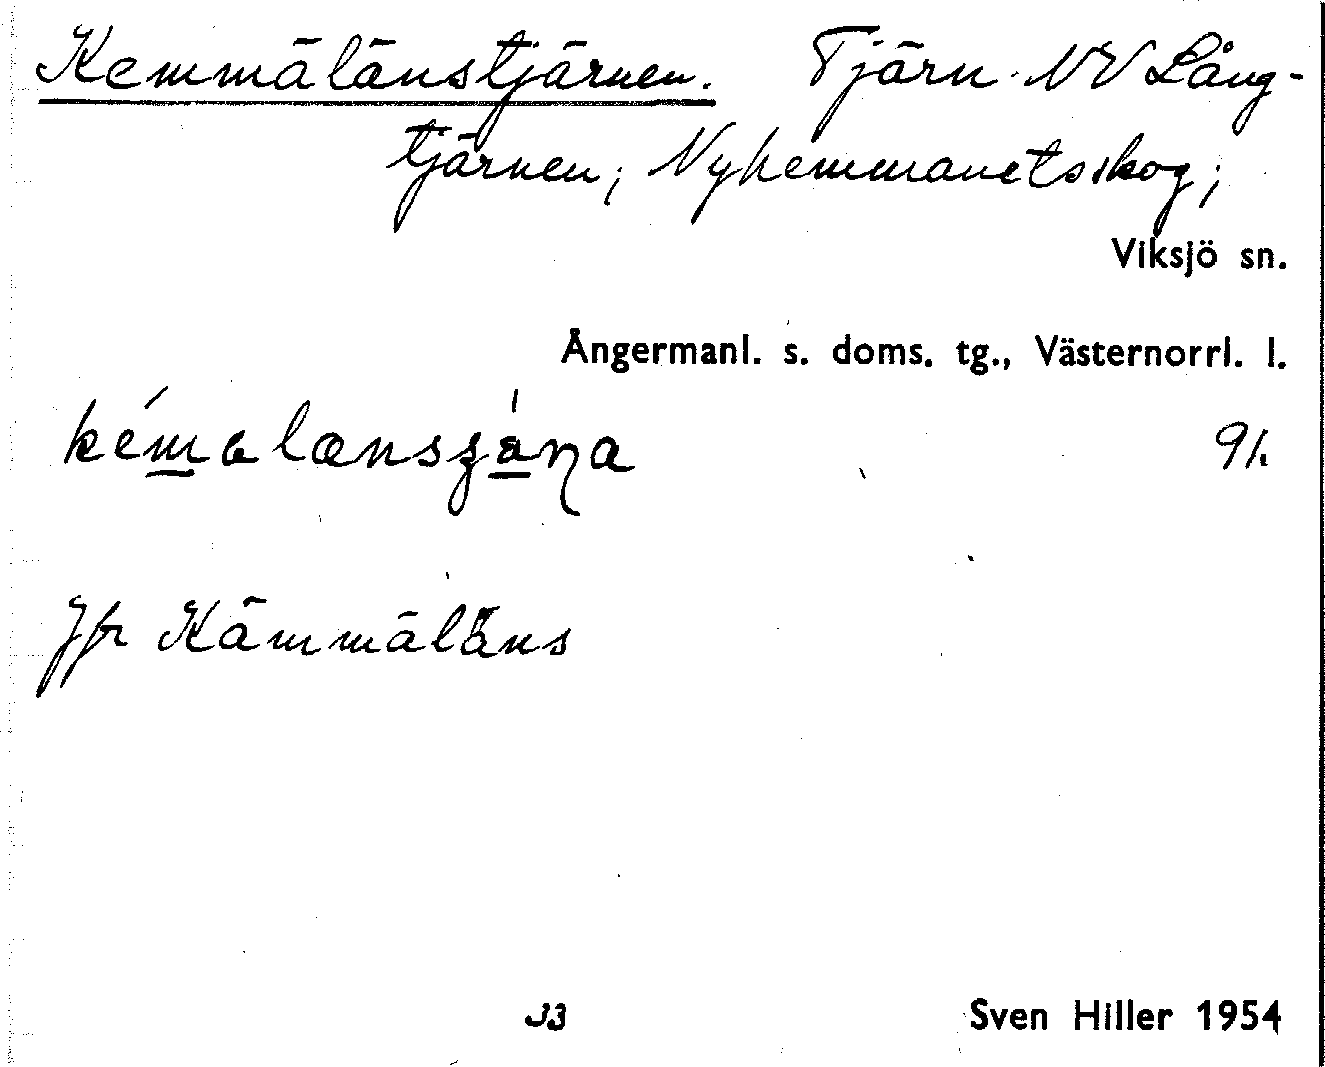 Kemmälänstjärnen. Tjärn NV Lång-
tjärnen; Nyhemmanetsskog;
Viksjö sn.
Ångermanl. s. doms. tg., Västernorrl. l.
Jfr Kämmäläns
Sven Hiller 1954